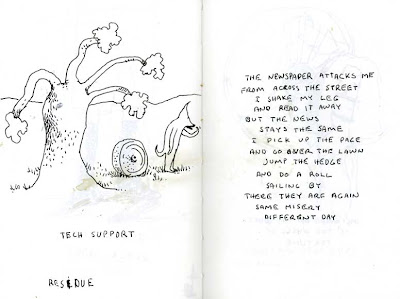 TECH SUPPORT
RESIDUE
THE NEWSPAPER ATTACKS ME
FROM ACROSS THE STREET
I SHAKE MY LEG
AND READ IT AWAY
BUT THE NEWS
STAYS THE SAME
I PICK UP THE PACE
AND GO OVER THE LAWN
JUMP THE HEDGE
AND DO A ROLL
SAILING BY
THERE THEY ARE AGAIN
SAME MISERY
DIFFERENT DAY